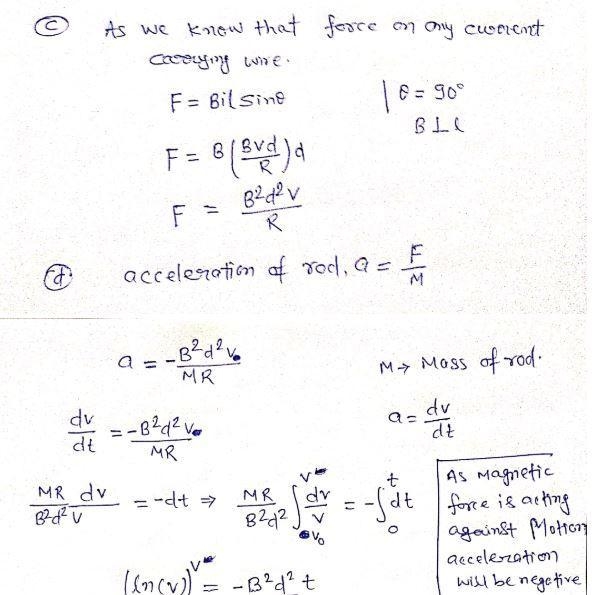 (c) As we know that force on any current
carrying wire.
F = Bilsinθ | θ = 90°
B ⊥ l
F = B(Bvd/R)d
F = B²d²V/R
(d) acceleration of rod, a = F/M
a = -B²d²v/MR M → Mass of rod.
dv/dt = -B²d²v/MR a = dv/dt
MR dv/B²d²v = -dt ⇒ MR/B²d² ∫_{v₀}^{v} dv/v = -∫_{0}^{t} dt
As Magnetic
force is acting
against Motion
acceleration
will be negative
(ln(v))^{v} = -B²d² t